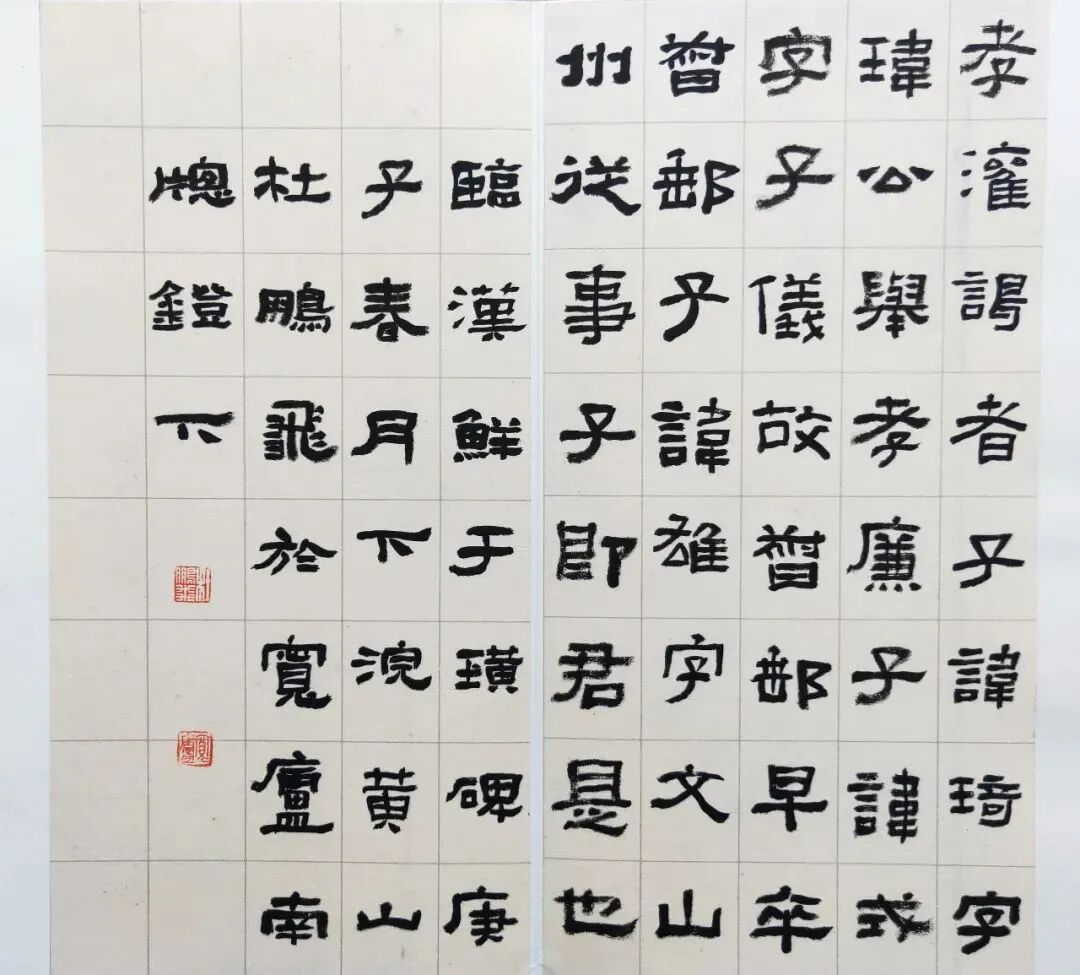 孝灌謁者子諱琦字
瑋公舉孝廉子諱式
字子儀故督郵早卒
督郵子諱雄字文山
州從事子即君是也
臨漢鮮于璜碑庚
子春月下浣黃山
杜鵬飛於寬廬南
牕鐙下
杜鵬飛
寬廬